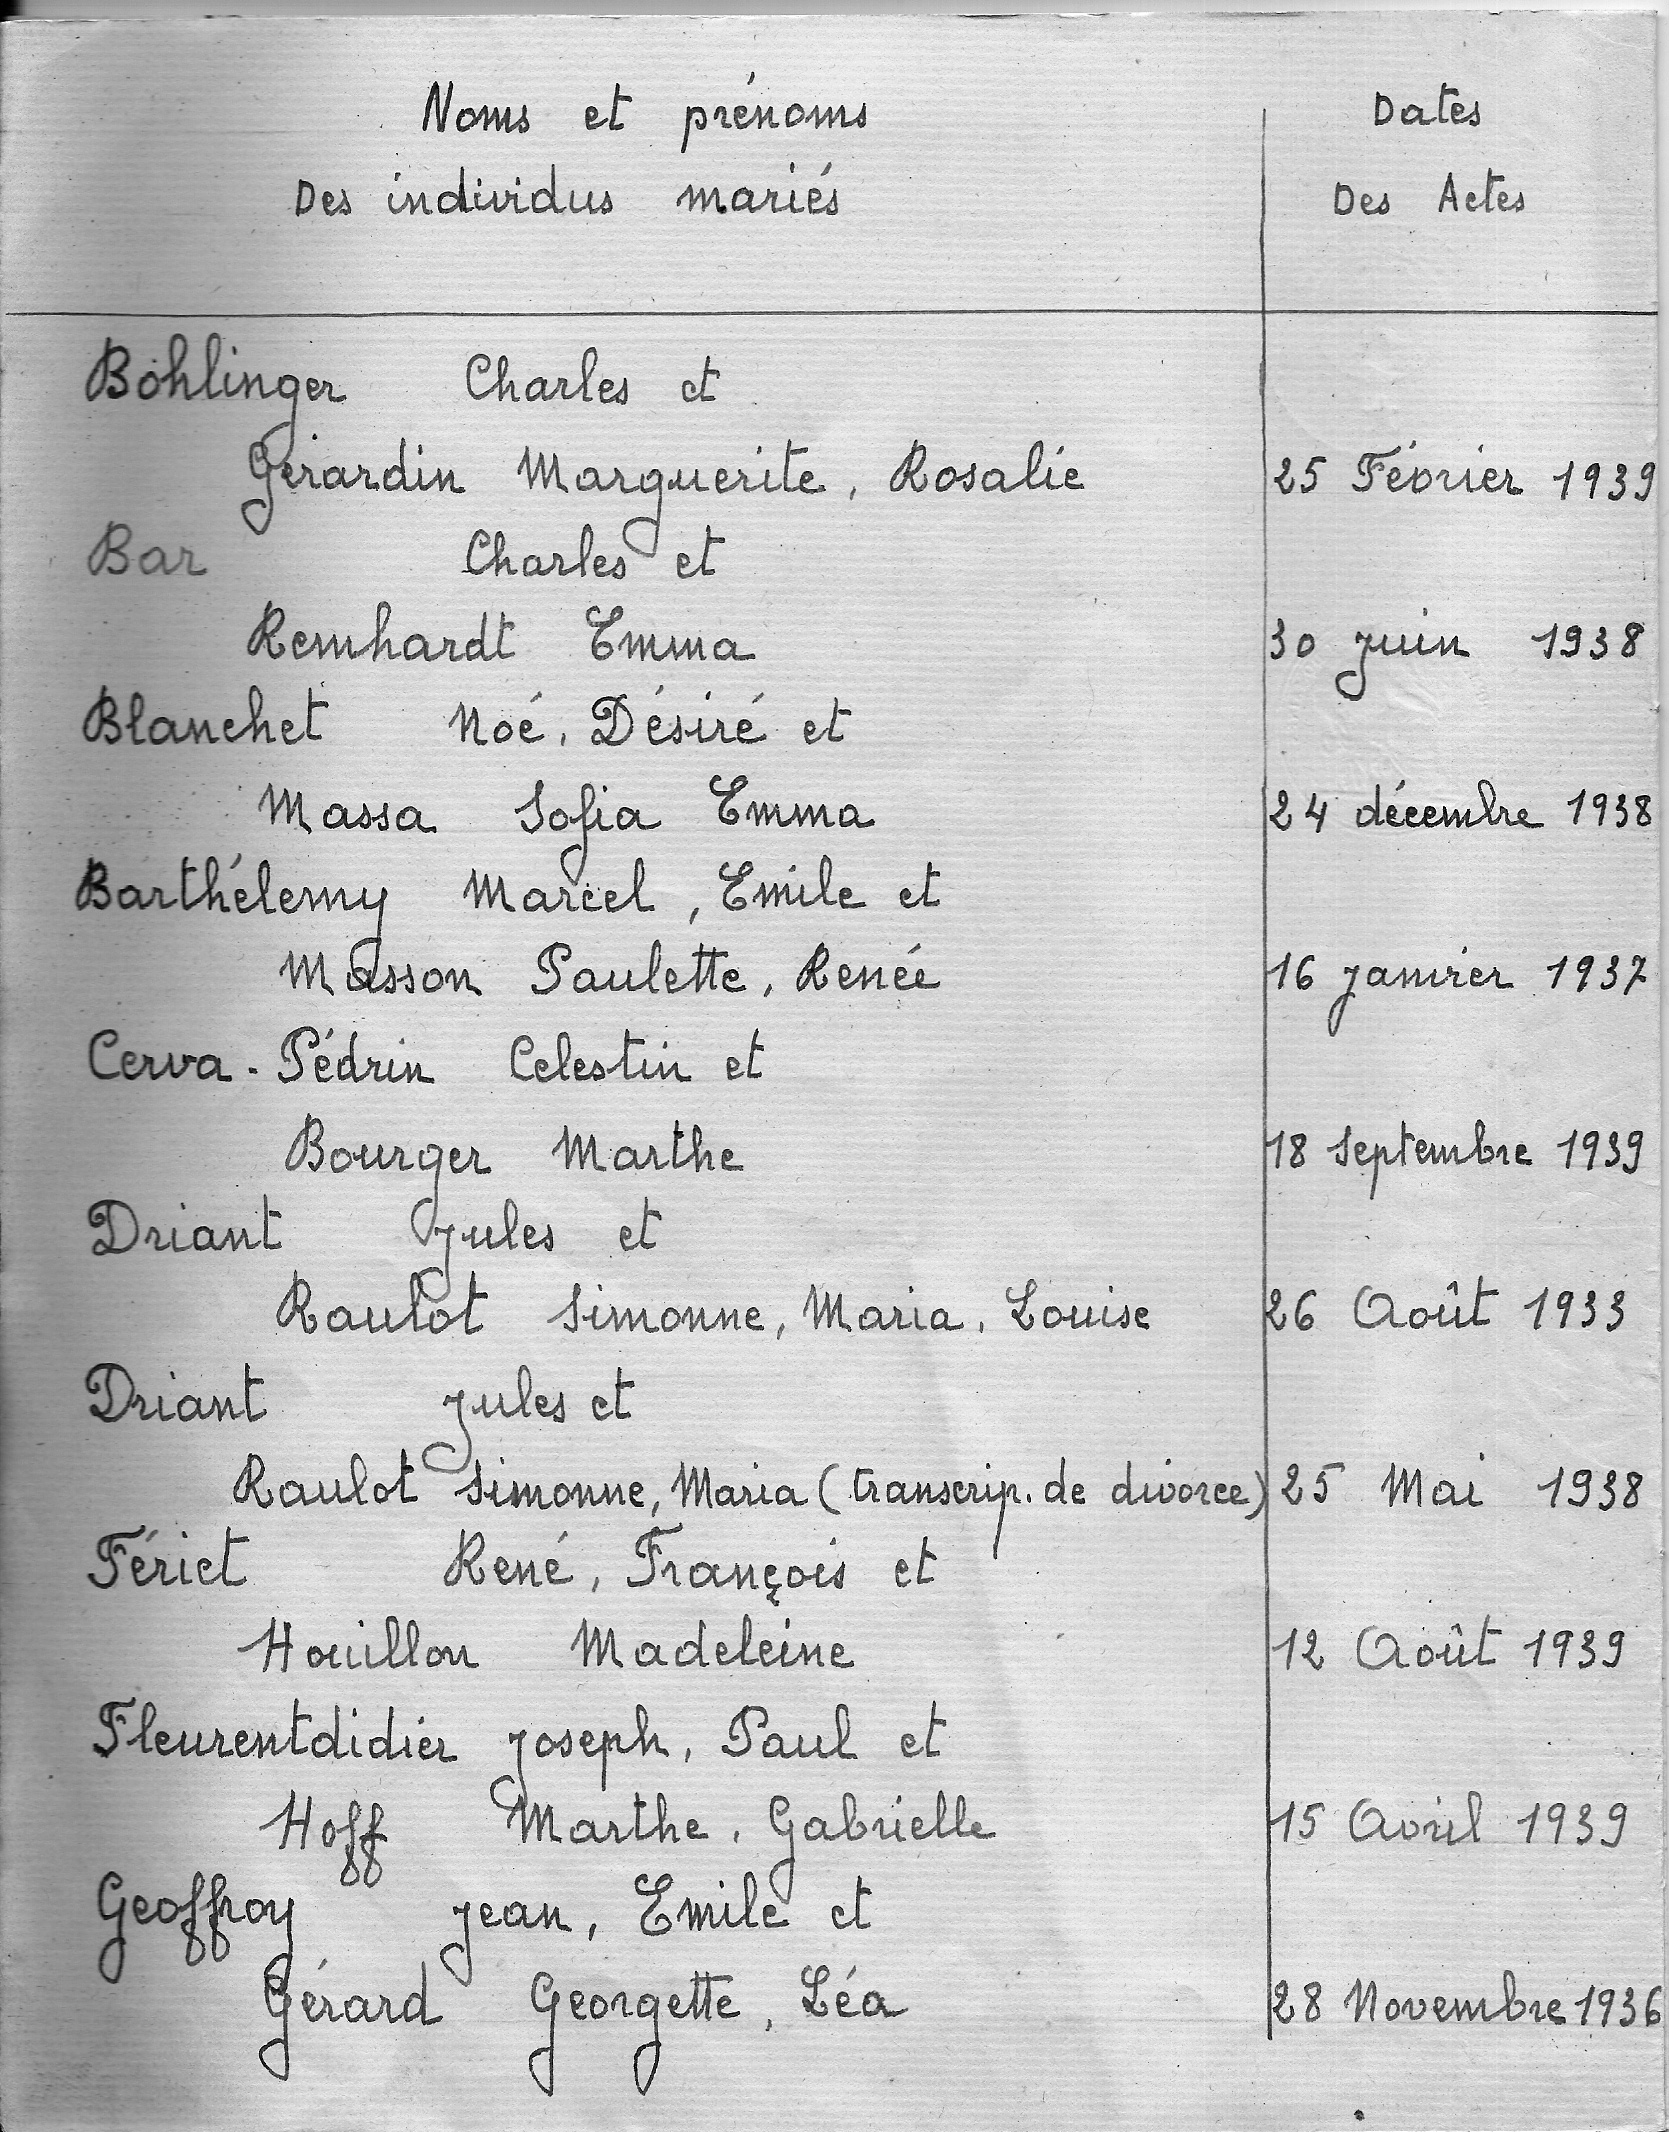 Noms et prénoms Dates
Des individus mariés Des Actes
Bohlinger Charles et
Gérardin Marguerite, Rosalie 25 Février 1939
Bar Charles et
Remhardt Emma 30 juin 1938
Blanchet Noé, Désiré et
Massa Sofia Emma 24 décembre 1938
Barthélemy Marcel, Emile et
Masson Paulette, Renée 16 janvier 1937
Cerva-Pédrin Celestin et
Bourger Marthe 18 Septembre 1939
Driant Jules et
Raulot Simonne, Maria, Louise 26 Août 1933
Driant Jules et
Raulot Simonne, Maria (transcrip. de divorce) 25 Mai 1938
Fériet René, François et
Houillon Madeleine 12 Août 1939
Fleurentdidier Joseph, Paul et
Hoff Marthe, Gabrielle 15 Avril 1939
Geoffroy Jean, Emile et
Gérard Georgette, Léa 28 Novembre 1936